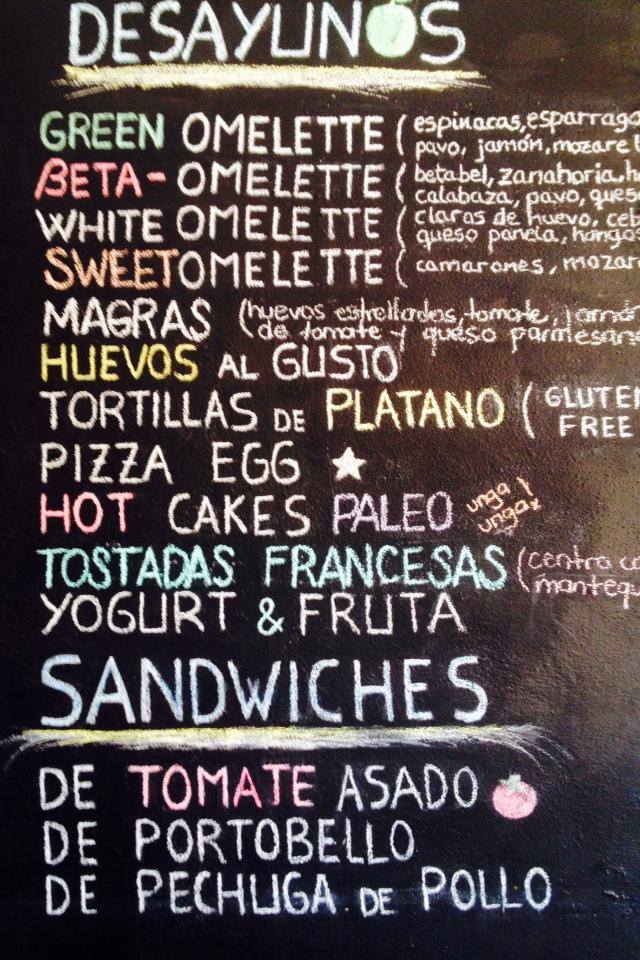 DESAYUNOS
GREEN OMELETTE (espinacas, esparrago
pavo, jamón, mozare
BETA-OMELETTE (betabel, zanahoria,
calabaza, pavo, ques
WHITE OMELETTE (claras de huevo, ceb
queso panela, hongos
SWEET OMELETTE (camarones, mozar
MAGRAS (huevos estrellados, tomate, jamón
de tomate y queso parmesan
HUEVOS AL GUSTO
TORTILLAS DE PLATANO (GLUTEN
FREE
PIZZA EGG
HOT CAKES PALEO unga
unga!
TOSTADAS FRANCESAS (centro
mantequ
YOGURT & FRUTA
SANDWICHES
DE TOMATE ASADO
DE PORTOBELLO
DE PECHUGA DE POLLO